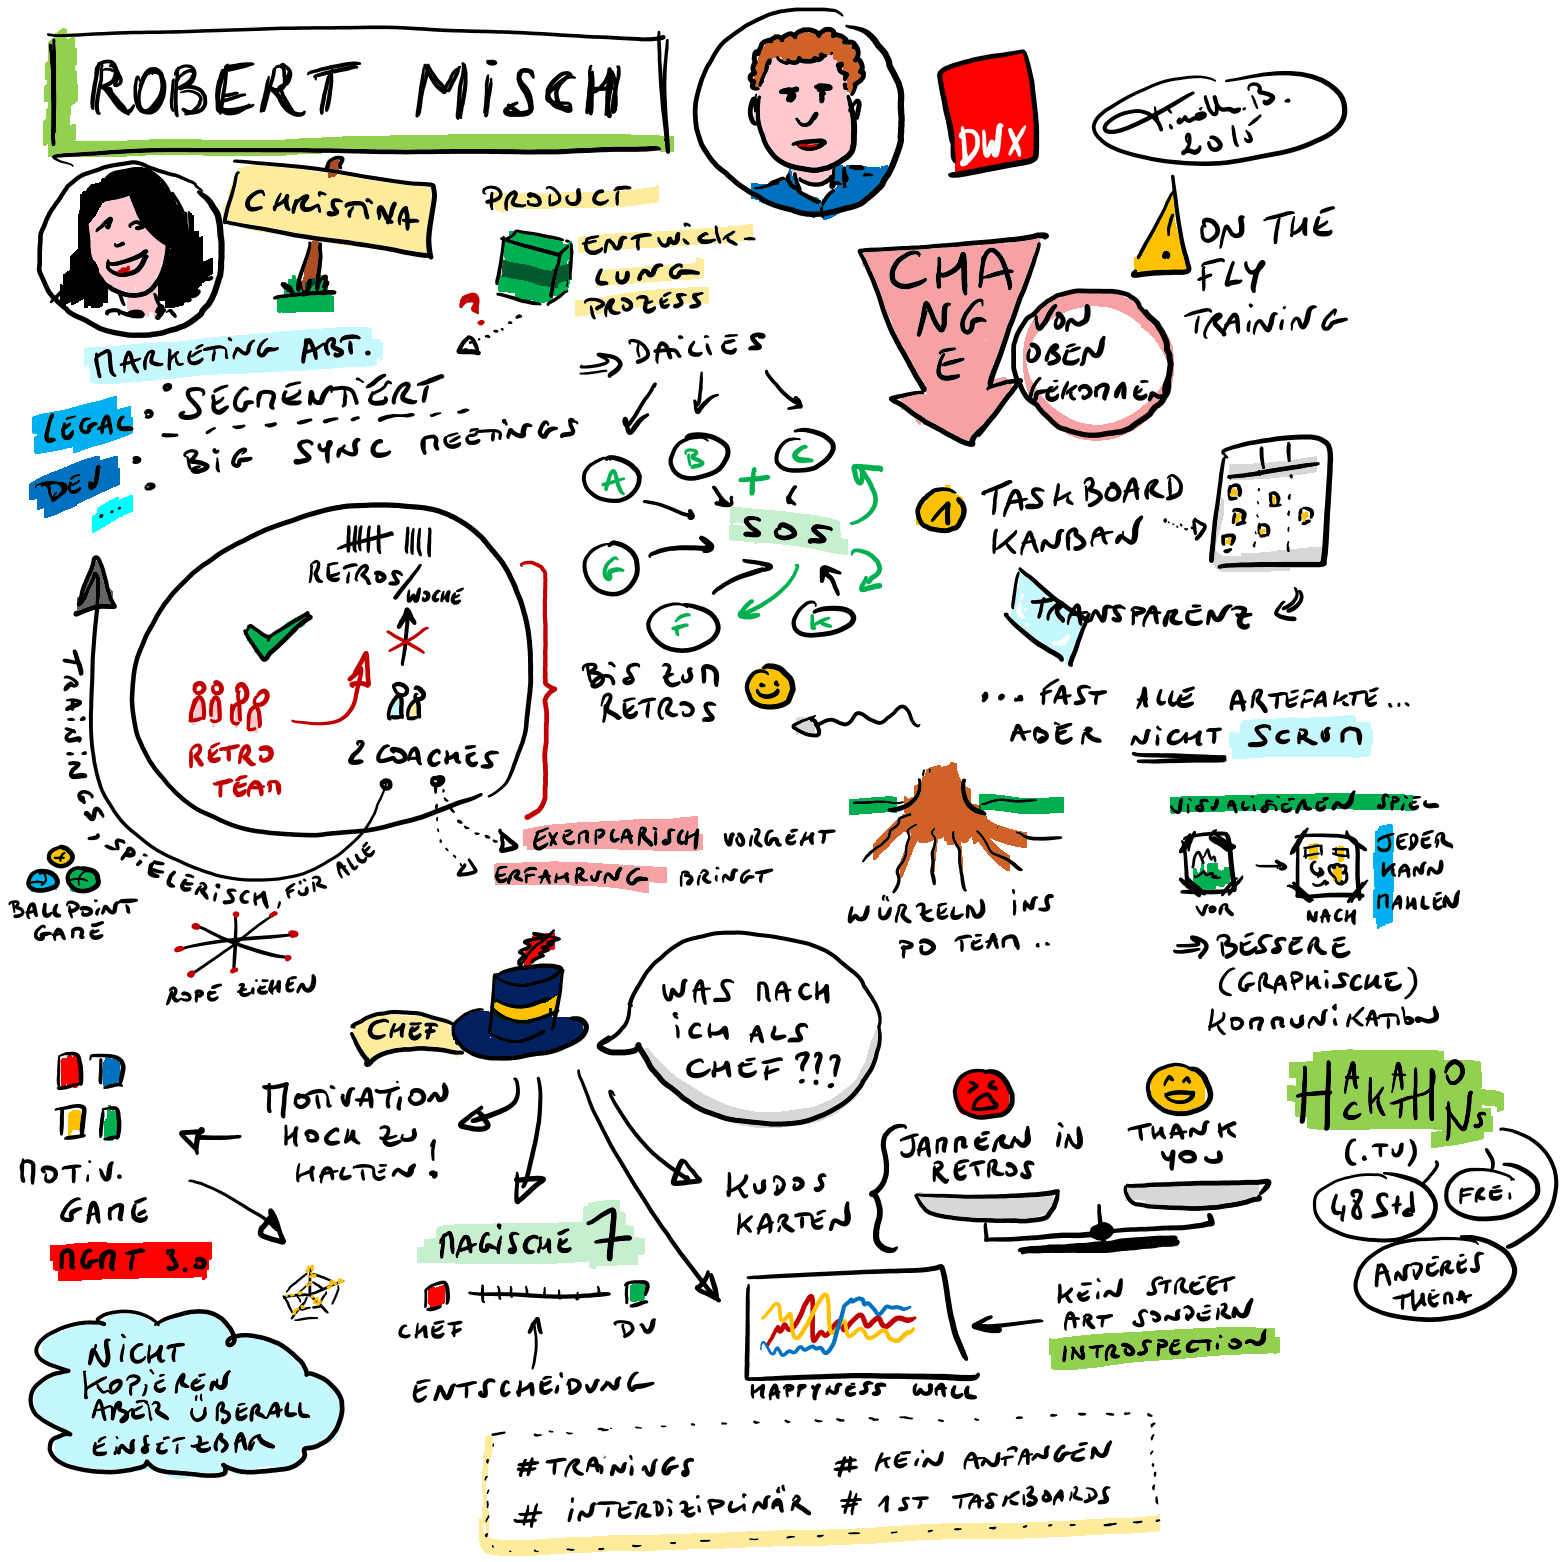 ROBERT MISCH
DWX
2015
CHRISTINA
PRODUCT
ENTWICK-
LUNG
PROZESS
?
MARKETING ABT.
LEGAL
DEV
...
SEGMENTIERT
BIG SYNC MEETINGS
⇒ DAILIES
A
B
C
+
SOS
G
F
K
BIS ZUM
RETROS
CHA
NG
E
VON
OBEN
GEKOMMEN
ON THE
FLY
TRAINING
1
TASKBOARD
KANBAN
TRANSPARENZ
... FAST ALLE ARTEFAKTE...
ABER NICHT SCRUM
RETROS/
WOCHE
RETRO
TEAM
2 COACHES
EXEMPLARISCH VORGEHT
ERFAHRUNG BRINGT
TRAININGS, SPIELERISCH, FÜR ALLE
BALLPOINT
GAME
ROPE ZIEHEN
WÜRZELN INS
PO TEAM ..
VISUALISIEREN SPIEL
VOR
NACH
JEDER
KANN
MAHLEN
⇒ BESSERE
(GRAPHISCHE)
KOMMUNIKATION
CHEF
WAS MACH
ICH ALS
CHEF???
MOTIVATION
HOCH ZU
HALTEN!
MOTIV.
GAME
MGMT 3.0
NICHT
KOPIEREN
ABER ÜBERALL
EINSETZBAR
MAGISCHE 7
CHEF
DU
ENTSCHEIDUNG
KUDOS
KARTEN
JAMMERN IN
RETROS
THANK
YOU
HAPPYNESS WALL
KEIN STREET
ART SONDERN
INTROSPECTION
HACKATHONS
(.TV)
48 Std
FREI
ANDERES
THEMA
# TRAININGS
# KEIN ANFANGEN
# INTERDIZIPLINÄR
# 1ST TASKBOARDS